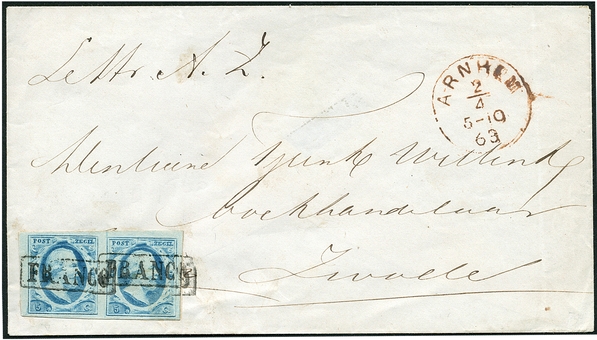 Letter A. Z.
ARNHEM
2/4
5-10
63
Tjeenk Willink
boekhandelaar
Zwolle
POST ZEGEL POST ZEGEL
FRANCO FRANCO
5 C 5 C